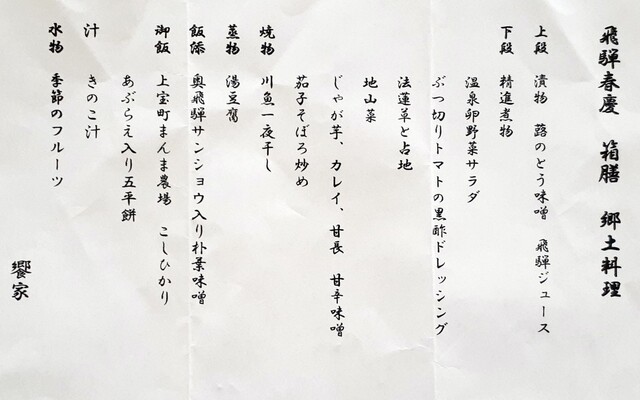 飛騨春慶 箱膳 郷土料理
上段 漬物 蕗のとう味噌 飛騨ジュース
下段 精進煮物
温泉卵野菜サラダ
ぶつ切りトマトの黒酢ドレッシング
法蓮草と占地
地山菜
じゃが芋、カレイ、甘長 甘辛味噌
茄子そぼろ炒め
焼物 川魚一夜干し
蒸物 湯豆腐
飯添 奥飛騨サンショウ入り朴葉味噌
御飯 上宝町まんま農場 こしひかり
あぶらえ入り五平餅
汁 きのこ汁
水物 季節のフルーツ
饗家